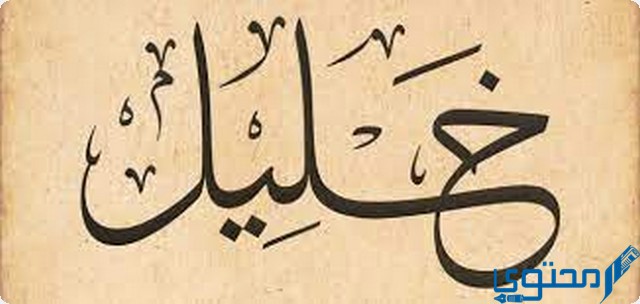 خَلِيل
محتوى